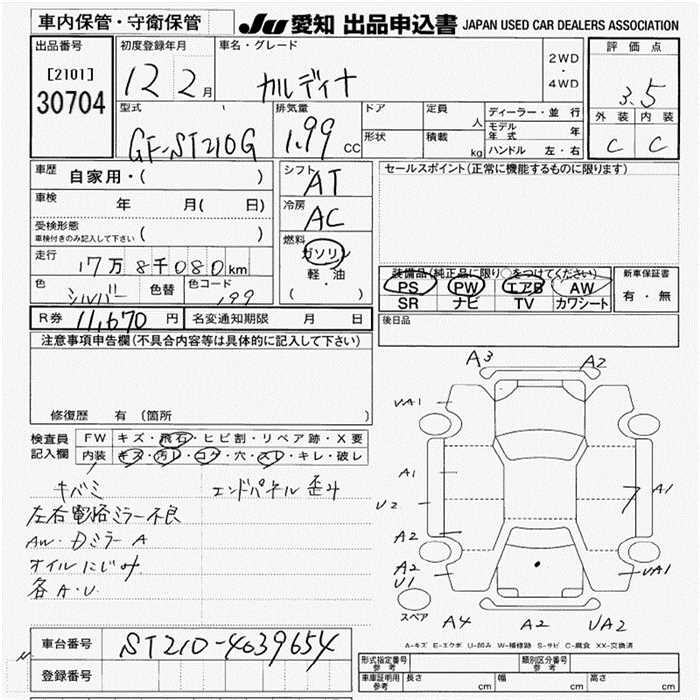 車内保管・守衛保管
JU 愛知 出品申込書 JAPAN USED CAR DEALERS ASSOCIATION
出品番号
[2101]
30704
初度登録年月
12 2月
車名・グレード
カルディナ
2WD
・
4WD
評価点
3.5
外装 内装
C C
型式
GF-ST210G
排気量
1.99 CC
ドア
形状
定員 人
積載 kg
ディーラー・並行
モデル年式 年
ハンドル 左・右
車歴 自家用・( )
車検 年 月( 日)
受検形態
車検付きのみ記入して下さい ( )
走行 17万8千080km
色 シルバー 色替 色コード 199
シフト AT
冷房 AC
燃料
ガソリン
軽・油
( )
セールスポイント(正常に機能するものに限ります)
装備品(純正品に限り○をつけてください)
PS PW エアB AW
SR ナビ TV カワシート
新車保証書
有・無
R券 11,670 円 名変通知期限 月 日
後日品
注意事項申告欄(不具合内容等は具体的に記入して下さい)
修復歴 有 (箇所 )
検査員記入欄
FW キズ・飛石・ヒビ割・リペア跡・X要
内装 キズ・汚レ・コゲ・穴・スレ・キレ・破レ
キバミ エンドパネル歪み
左右電格ミラー不良
AW・Dミラー A
オイルにじみ
各A・U
A3 A2
UA1
A1
U2
A1
A2
A2
U1
UA1
スペア
A4 A2 UA2
A-キズ E-エクボ U-凹み W-補修跡 S-サビ C-腐食 XX-交換済
車台番号 ST210-4039654
登録番号
形式指定番号 参考 類別区分番号 参考
車庫証明用 参考 長さ cm 幅 cm 高さ cm